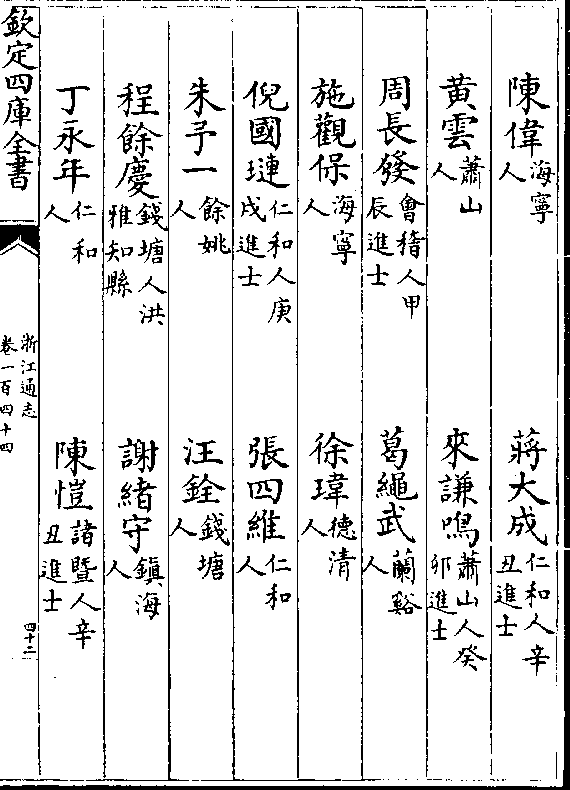 陳偉海寧人　蔣大成仁和人辛丑進士
黃雲蕭山人　來謙鳴蕭山人癸卯進士
周長發會稽人甲辰進士　葛繩武蘭谿人
施觀保海寧人　徐瑋德清人
倪國璉仁和人庚戌進士　張四維仁和人
朱予一餘姚人　汪銓錢塘人
程餘慶錢塘人洪雅知縣　謝緒守鎮海人
丁永年仁和人　陳愷諸暨人辛丑進士
欽定四庫全書
浙江通志
卷一百四十四
四十二